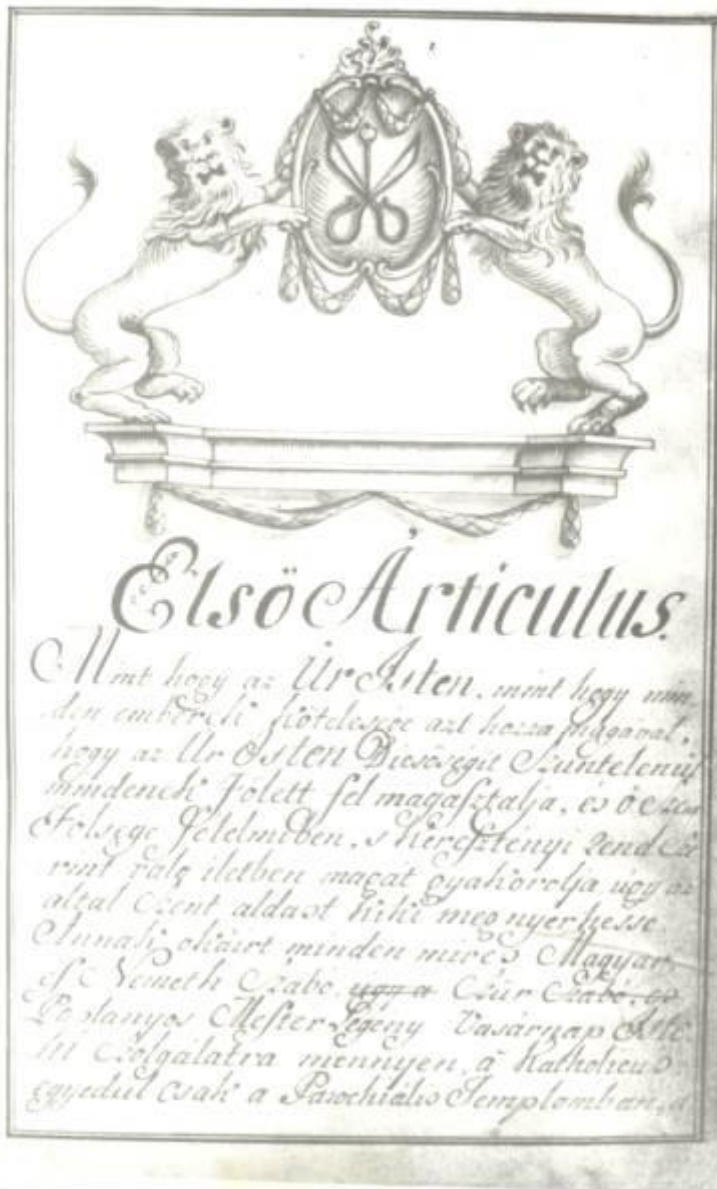 Elsö Árticulus.
Mint hogy az Úr Isten, mint hogy min-
den embernek kötelesége azt hozza magával,
hogy az Ur Isten Dicsőségit Szüntelenül
mindenek fölött fel magasztalja, es ö szent
Felsege felelmiben, s keresztényi rend sze
rint való életben magat gyakorolja úgy az
által szent aldast kiki meg nyerhesse.
Annak okáirt minden mires Magyar
és Nemeth Szabo, ugy a Szür Szabó, es
Mester Legény Vasárnap Iste
ni szolgálatra mennyen, á Katholicus
egyedül csak a Parochialis Templomban, a